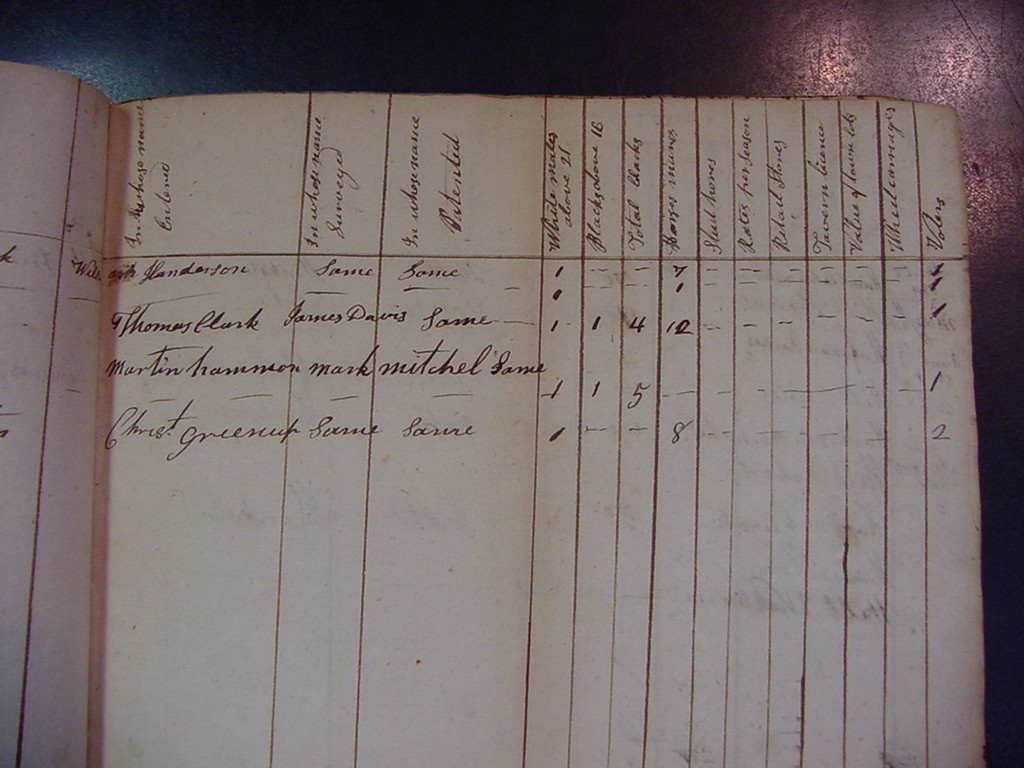 In whose name Entered
In whose name Surveyed
In whose name Patented
White males above 21
Blacks above 16
Total blacks
Horses mares
Stud horses
Rates per season
Retail Stores
Tavern licence
Value of town lots
Wheel carriages
Voters
Handerson Same Same 1 – – 7 – – – – – – – 1
– – – – 1 1 1
Thomas Clark James Davis Same – 1 1 4 12 – – – – – – – 1
Martin hammon mark mitchel Same
– – – – 1 1 5 – – – – – – – – 1
Christ. Greenup Same Same 1 – – 8 – – – – – – 2